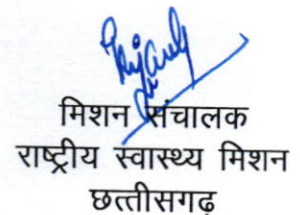 मिशन संचालक
राष्ट्रीय स्वास्थ्य मिशन
छत्तीसगढ़